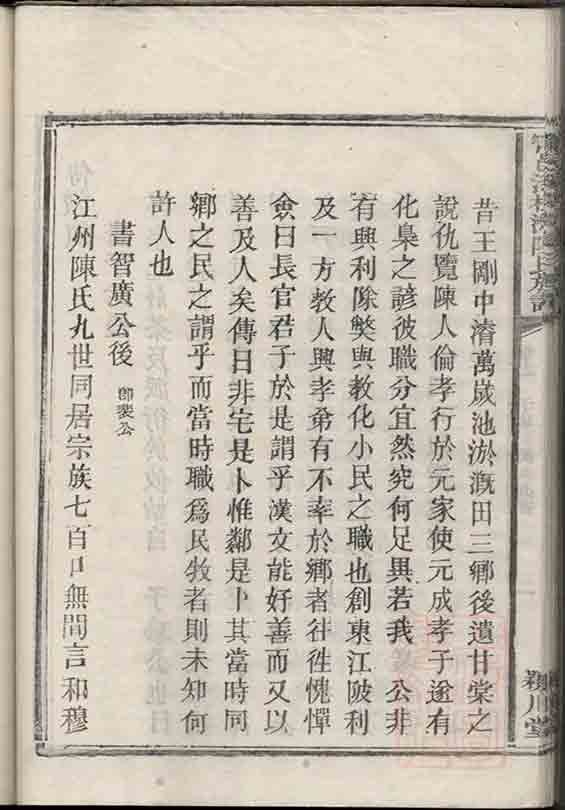 昔王剛中濬萬歲池淤溉田三鄉後遺甘棠之
說仇覽陳人倫孝行於元家使元成孝子遂有
化梟之諺彼職分宜然究何足異若我 公非
有興利除獘與教化小民之職也創東江陂利
及一方教人興孝弟有不率於鄉者往徃愧憚
僉曰長官君子於是謂乎漢文能好善而又以
善及人矣傳曰非宅是卜惟鄰是卜其當時同
鄉之民之謂乎而當時職爲民牧者則未知何
許人也
書智廣公後 卽裴公
江州陳氏九世同居宗族七百口無間言和穆
陳氏族譜
潁川堂